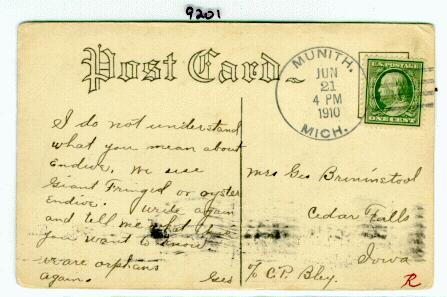 9201
Post Card
MUNITH.
JUN
21
4 PM
1910
MICH.
U.S. POSTAGE
ONE CENT
I do not understand
what you mean about
Endive. We use
Giant Fringed or oyster
Endive. Write again
and tell me what
you want to know
we are orphans
again. Geo
Mrs Geo Brininstool
Cedar Falls
Iowa
c/o C.P. Bley.
R